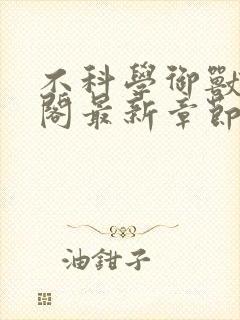 不科學御獸
閣最新章節
油鉗子